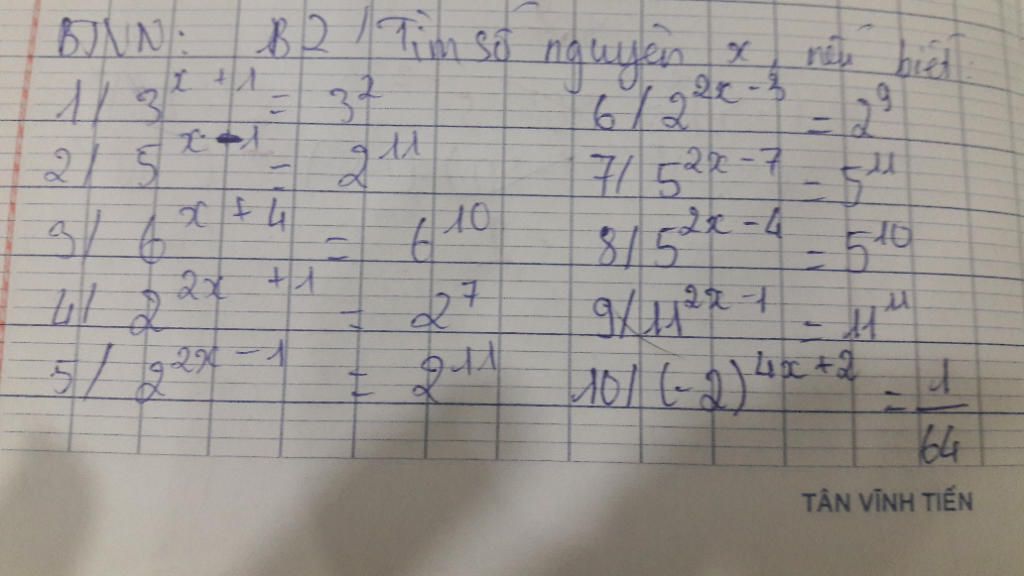 BTNN: B2/ Tìm số nguyên x, nếu biết:
1/ 3^{x+1} = 3^2
6/ 2^{2x-3} = 2^9
2/ 5^{x-1} = 2^{11}
7/ 5^{2x-7} = 5^{11}
3/ 6^{x+4} = 6^{10}
8/ 5^{2x-4} = 5^{10}
4/ 2^{2x+1} = 2^7
9/ 11^{2x-1} = 11^{11}
5/ 2^{2x-1} = 2^{11}
10/ (-2)^{4x+2} = 1/64
TÂN VĨNH TIẾN